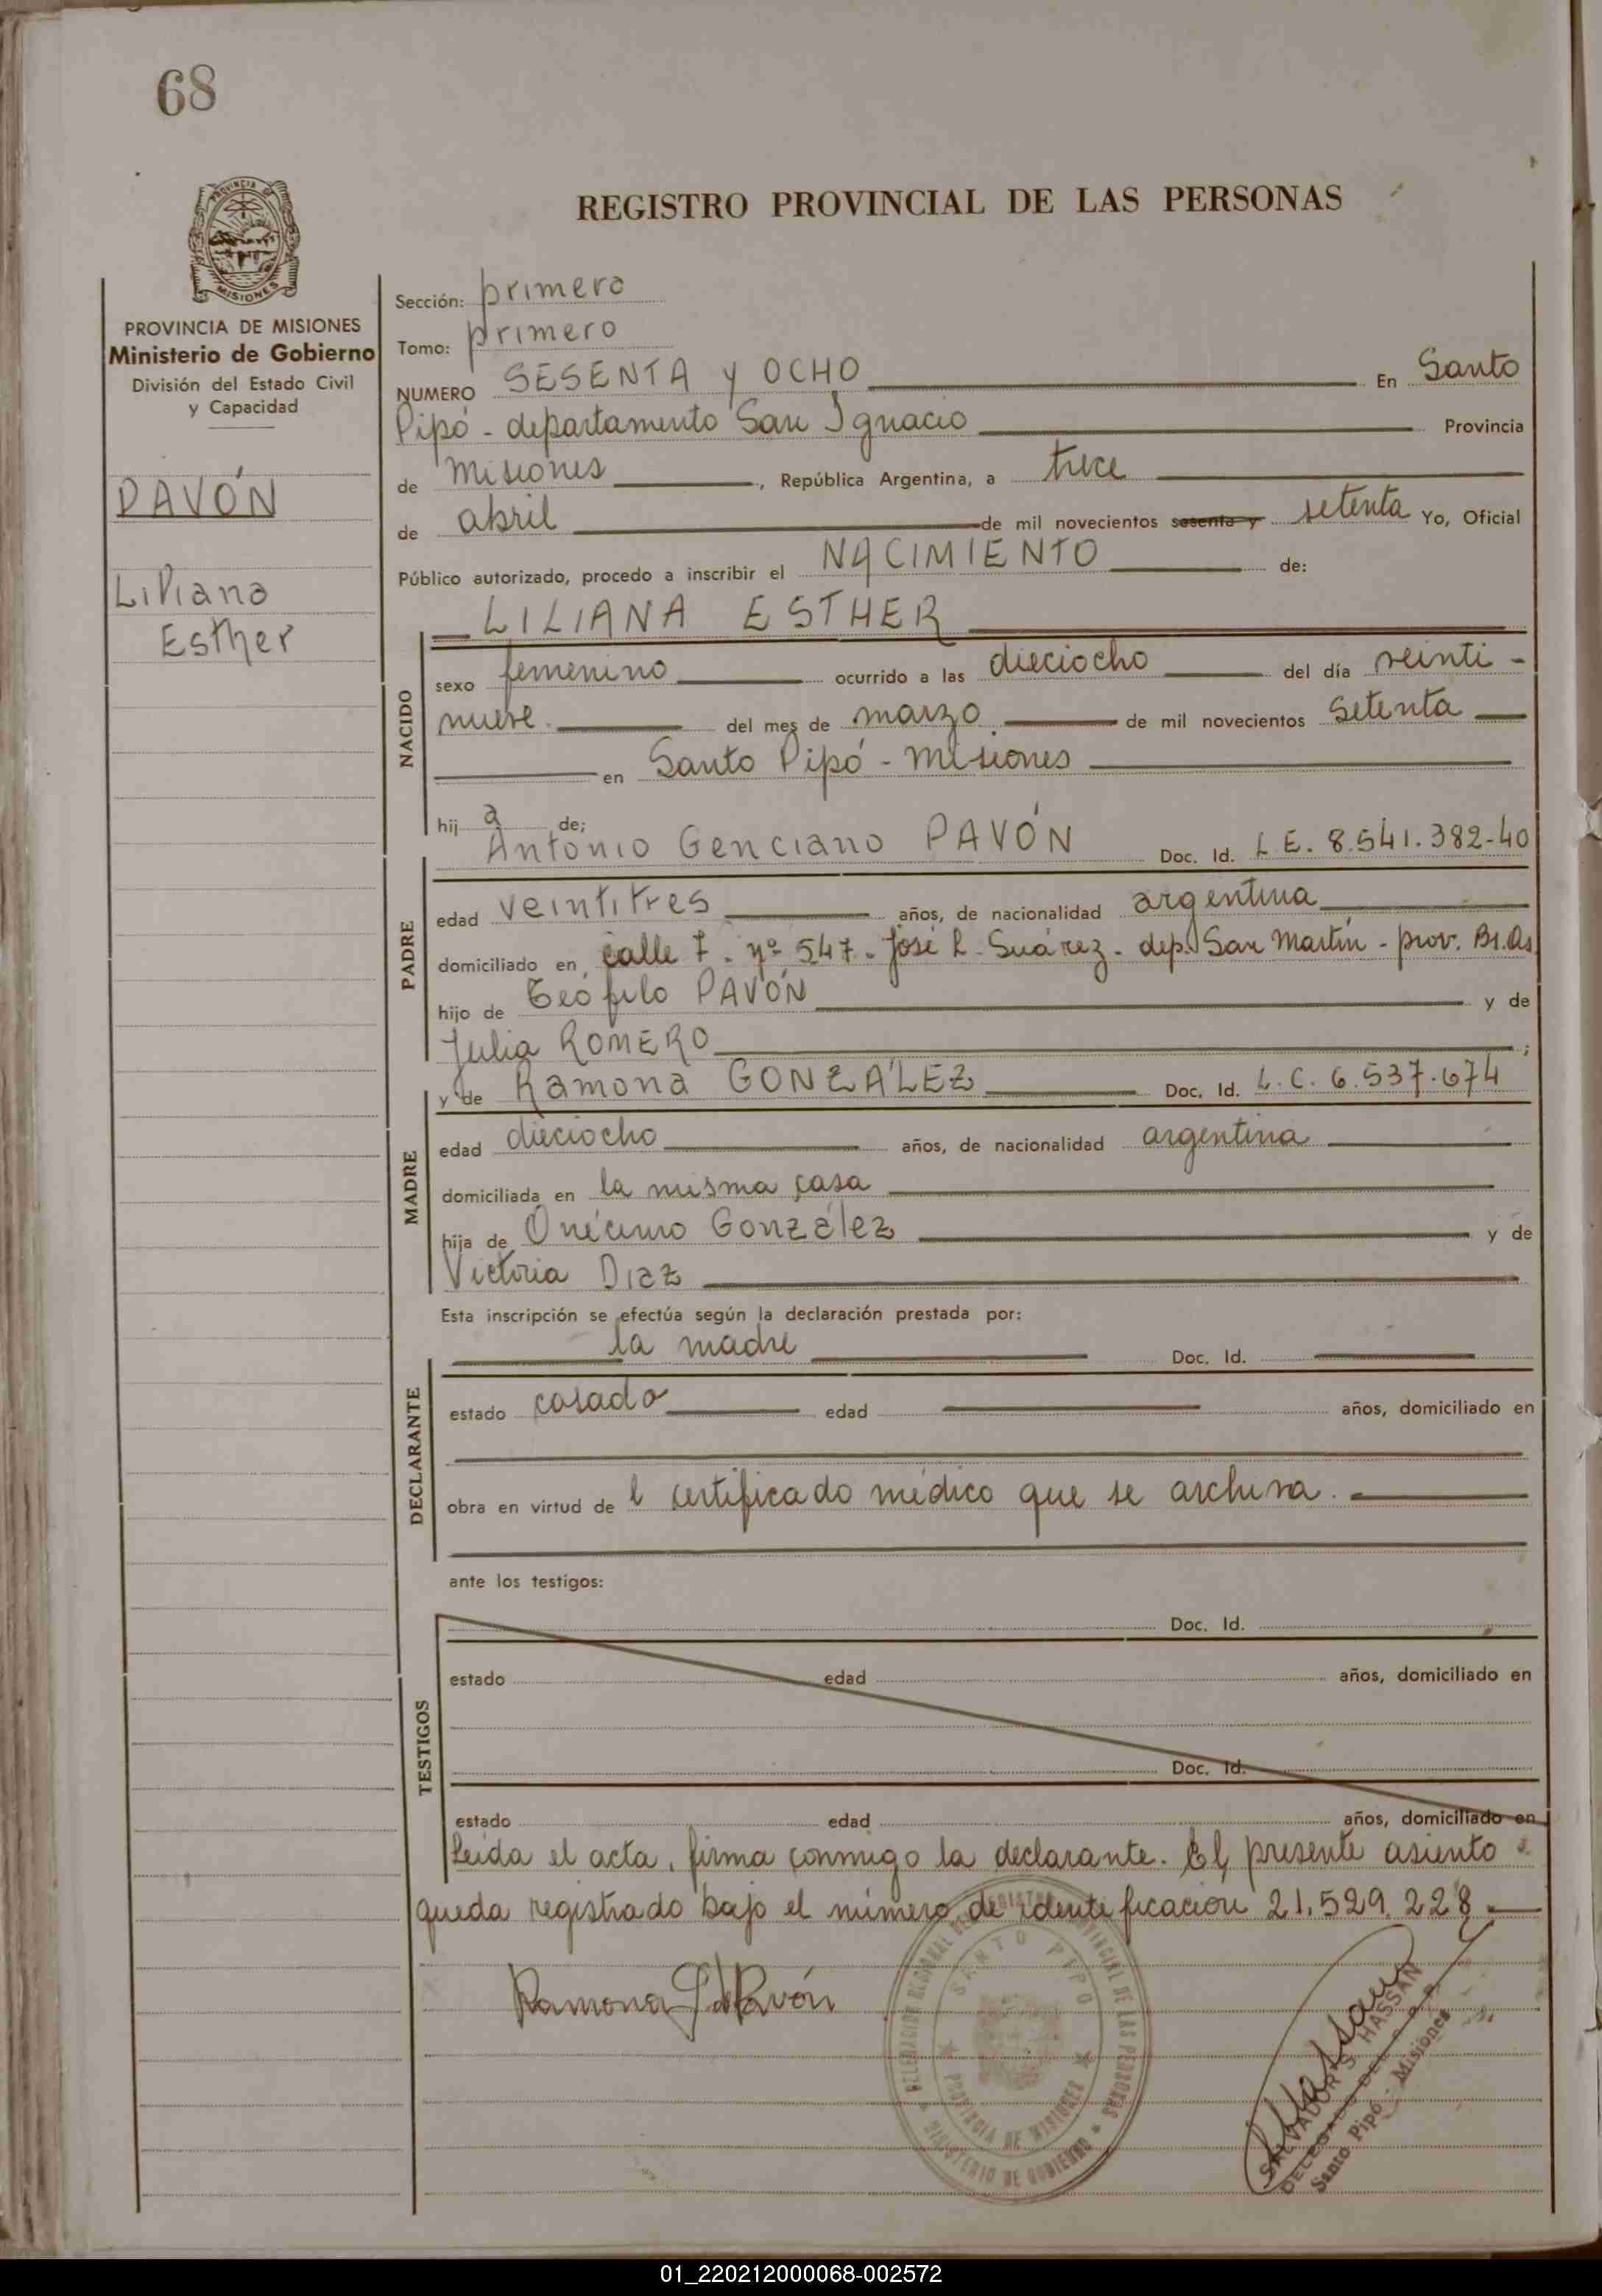 68
REGISTRO PROVINCIAL DE LAS PERSONAS
PROVINCIA DE
MISIONES
PROVINCIA DE MISIONES
Ministerio de Gobierno
División del Estado Civil
y Capacidad
PAVÓN
Liliana
Esther
Sección: primera
Tomo: primero
NUMERO SESENTA y OCHO En Santo
Pipó - departamento San Ignacio Provincia
de Misiones, República Argentina, a trece
de abril de mil novecientos sesenta y setenta Yo, Oficial
Público autorizado, procedo a inscribir el NACIMIENTO de:
LILIANA ESTHER
NACIDO
sexo femenino ocurrido a las dieciocho del día veinti-
nueve del mes de marzo de mil novecientos setenta
en Santo Pipó - Misiones
hij a de;
PADRE
Antonio Genciano PAVÓN Doc. Id. L.E. 8.541.382-40
edad veintitres años, de nacionalidad argentina
domiciliado en calle 7. nº 547. José L. Suárez. dep. San Martín - prov. Bs. As
hijo de Teófilo PAVÓN y de
Julia ROMERO;
MADRE
y de Ramona GONZÁLEZ Doc. Id. L.C. 6.537.674
edad dieciocho años, de nacionalidad argentina
domiciliada en la misma casa
hija de Onécimo González y de
Victoria Díaz
Esta inscripción se efectúa según la declaración prestada por:
DECLARANTE
la madre Doc. Id.
estado casada edad años, domiciliado en
obra en virtud de l certificado médico que se archiva.
ante los testigos:
TESTIGOS
Doc. Id.
estado edad años, domiciliado en
Doc. Id.
estado edad años, domiciliado en
Leída el acta, firma conmigo la declarante. El presente asiento
queda registrado bajo el número de identificación 21.529.228
Ramona G. de Pavón
DELEGACION REGIONAL DEL REGISTRO PROVINCIAL DE LAS PERSONAS
MINISTERIO DE GOBIERNO
SANTO PIPO
PROVINCIA DE MISIONES
SALVADOR HASSAN
DELEGADO DEL R.P.P.
Santo Pipó - Misiones
01_220212000068-002572